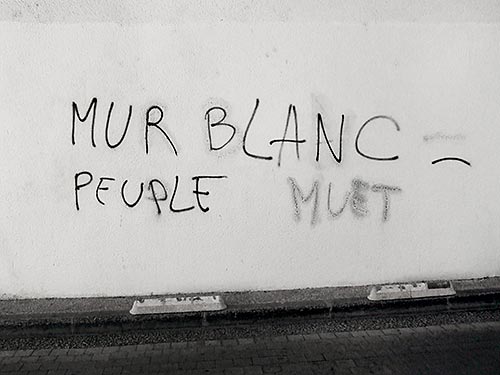 MUR BLANC _
PEUPLE MUET